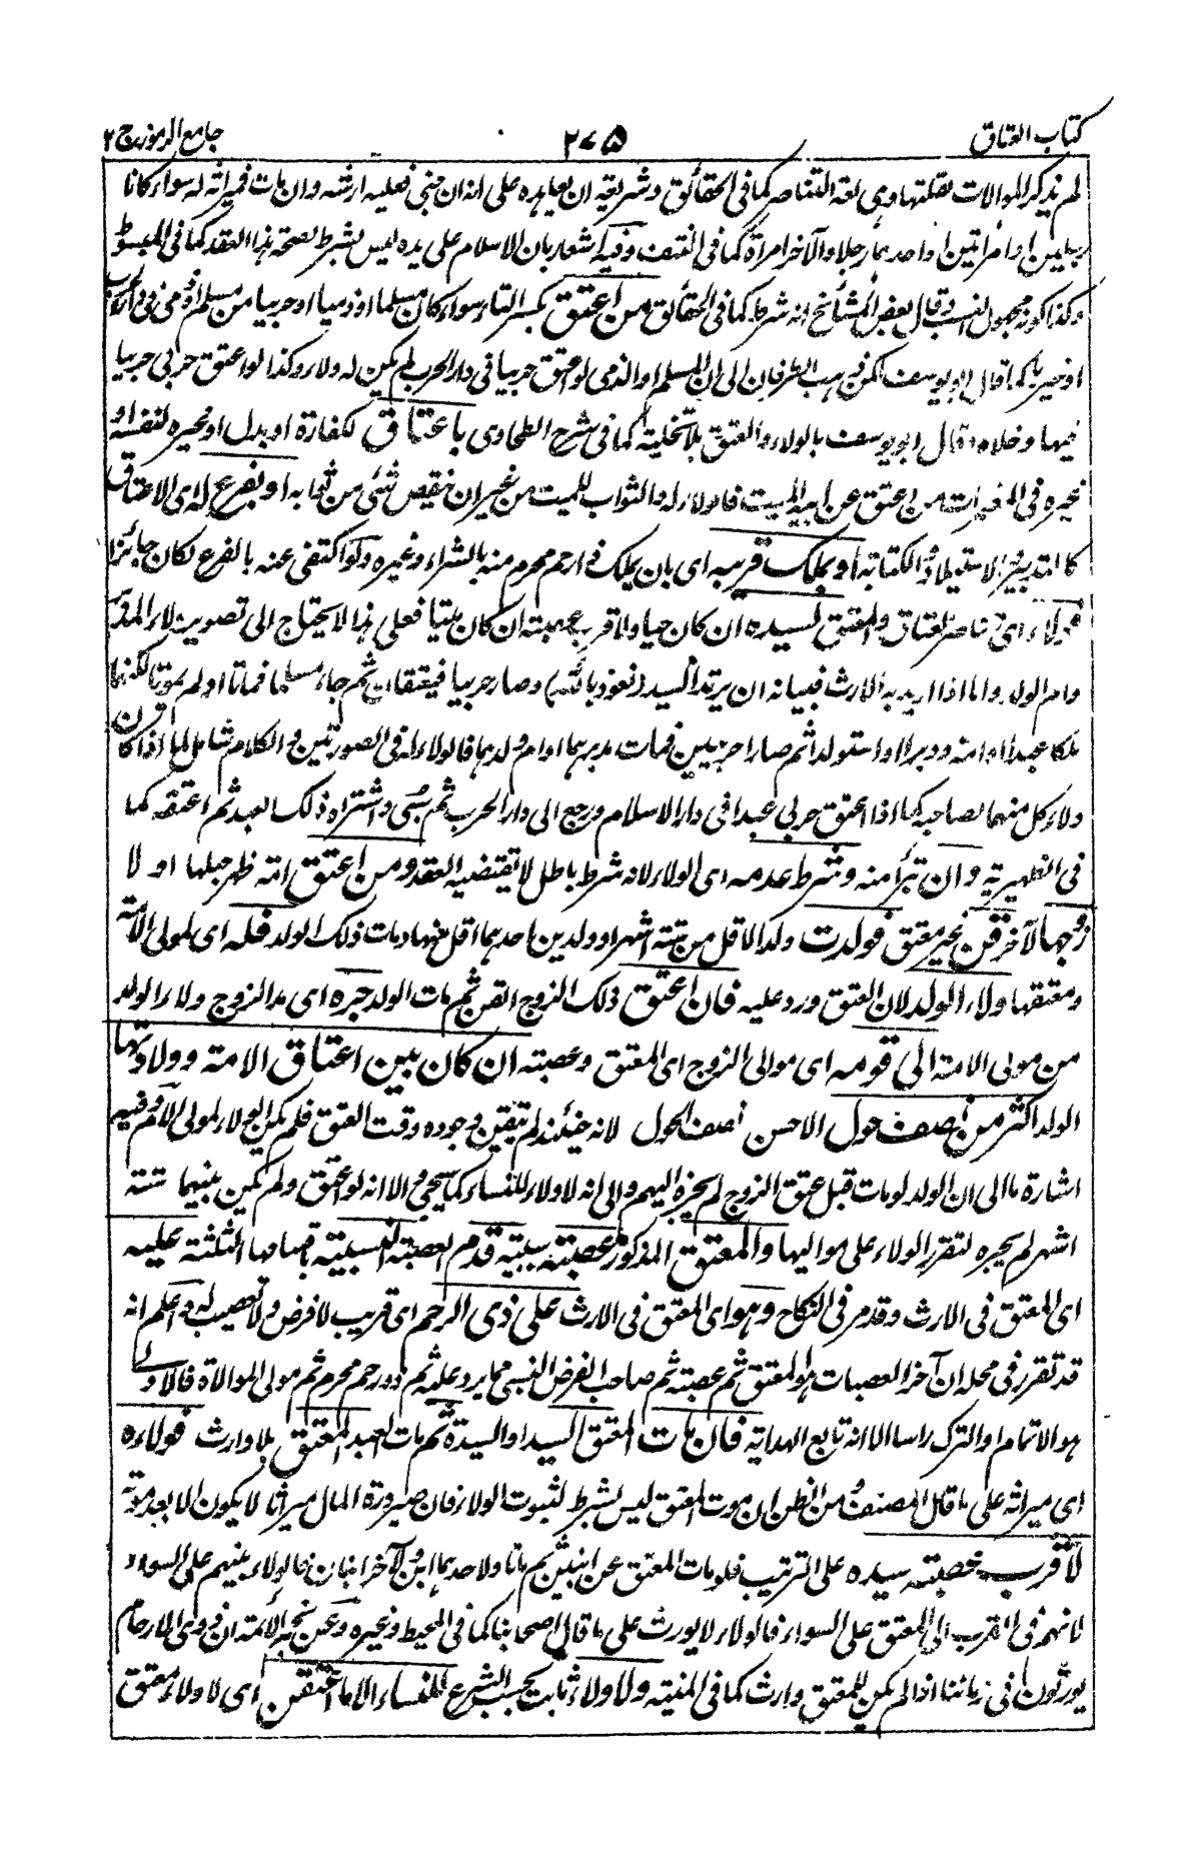 كتاب العتاق ٢٧٥ جامع الرموز ج ٢
لم يذكر الموالات لقلتها وهى لغة التناصر كما فى الحقائق وشريعة ان يعاهده على انه ان جنى فعليه ارشه وان مات فميراثه له سواء كانا
رجلين او امرأتين او احدهما رجلا والآخر امرأة كما فى النتف وفيه اشعار بان الاسلام على يده ليس بشرط لصحة هذا العقد كما فى المبسوط
وكذا كونه مجهول النسب وقال بعض المشائخ انه شرط كما فى الحقائق من اعتق بكسر التاء سواء كان مسلما او ذميا او حربيا من مسلم او ذمى
او حربى كما قال ابو يوسف لكن ذهب الطرفان الى ان المسلم او الذمى لو اعتق حربيا فى دار الحرب لم يكن له ولاء وكذا لو اعتق حربى حربيا
فيها وخلاه وقال ابو يوسف بالولاء والعتق بلا تخلية كما فى شرح الطحاوى باعتاق لكفارة او بدل او غيره لنفسه او
غيره فى المضمرات من اعتق عن ابيه الميت فالولاء له والثواب للميت من غير ان ينقص شئ من ثوابه او بفرع له اى الاعتاق
كالتدبير والاستيلاد والكتابة او بملك قريبه اى بان يملك ذا رحم محرم منه بالشراء وغيره ولو اكتفى عنه بالفرع لكان جائزا
فولاءه اى تناصر العتاق والمعتق لسيده ان كان حيا ولاقرب عصبته ان كان ميتا فعلى هذا لا يحتاج الى تصوير ولاء المدبر
وام الولد واما اذا اريد به الارث فبيانه ان يرتد السيد (نعوذ بالله) وصار حربيا فيعتقان ثم جاء مسلما فماتا او لم يموتا لكنهما
ملكا عبدا او امة ودبرا او استولدا ثم صارا حربيين فمات مدبرهما او ام ولدهما فالولاء له فى الصورتين والكلام شامل لما اذا كان
ولاء كل منهما لصاحبه كما اذا اعتق حربى عبدا فى دار الاسلام ورجع الى دار الحرب ثم سبى واشتراه ذلك العبد ثم اعتقه كما
فى الظهيرية وان تبرأ منه وشرط عدمه اى الولاء لانه شرط باطل لا يقتضيه العقد ومن اعتق امة ظهر حبلها او لا
زوجها لآخر قن غير معتق فولدت ولدا لاقل من ستة اشهر او ولدين احدهما اقل منها ومات ذلك الولد فله اى لمولى الامة
ومعتقها ولاء الولد لان العتق ورد عليه فان اعتق ذلك الزوج القن ثم مات الولد جره اى مد الزوج ولاء الولد
من مولى الامة الى قومه اى موالى الزوج اى المعتق وعصبته ان كان بين اعتاق الامة وولادتها
الولد اكثر من نصف حول الاحسن نصف الحول لانه حينئذ لم يتيقن وجوده وقت العتق فلم يكن الولاء لمولى الام وفيه
اشارة ما الى ان الولد لو مات قبل عتق الزوج لم يجره اليهم والى انه لا ولاء للنساء كما سيجئ والا انه لو اعتق ولم يكن بينهما ستة
اشهر لم يجره لتقرر الولاء على مواليها والمعتق المذكور عصبة سببية قدم العصبة النسبية باقسامها الثلثة عليه
اى المعتق فى الارث وقد مر فى النكاح وهو اى المعتق فى الارث على ذى الرحم اى قريب لا فرض ولا تعصيب له واعلم انه
قد تقرر فى محله ان آخر العصبات هو المعتق ثم عصبته ثم صاحب الفرض النسبى مما يرد عليه ثم ذو رحم محرم ثم مولى الموالاة فالاولى
هو الاتمام او الترك راسا الا انه تابع الهداية فان مات المعتق السيد او السيدة ثم مات العبد المعتق بلا وارث فولاءه
اى ميراثه على ما قال المصنف من الظن ان موت المعتق ليس بشرط لثبوت الولاء فان صيرورة المال ميراثا لا يكون الا بعد موته
لاقرب عصبة سيده على الترتيب فلو مات المعتق عن ابنين ثم ماتا ولاحدهما ابن وللآخر ابنان فالولاء بينهم على السواء
لانهم فى القرب الى المعتق على السواء فالولاء لا يورث على ما قال اصحابنا كما فى المحيط وغيره وعن الائمة ان ذوى الارحام
يورثون فى زماننا اذا لم يكن للمعتق وارث كما فى المنية ولا ولاء ثابت بحسب الشرع للنساء الا ما اعتقن اى لا ولاء معتق